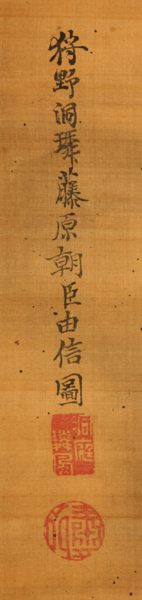 狩野洞琳藤原朝臣由信圖